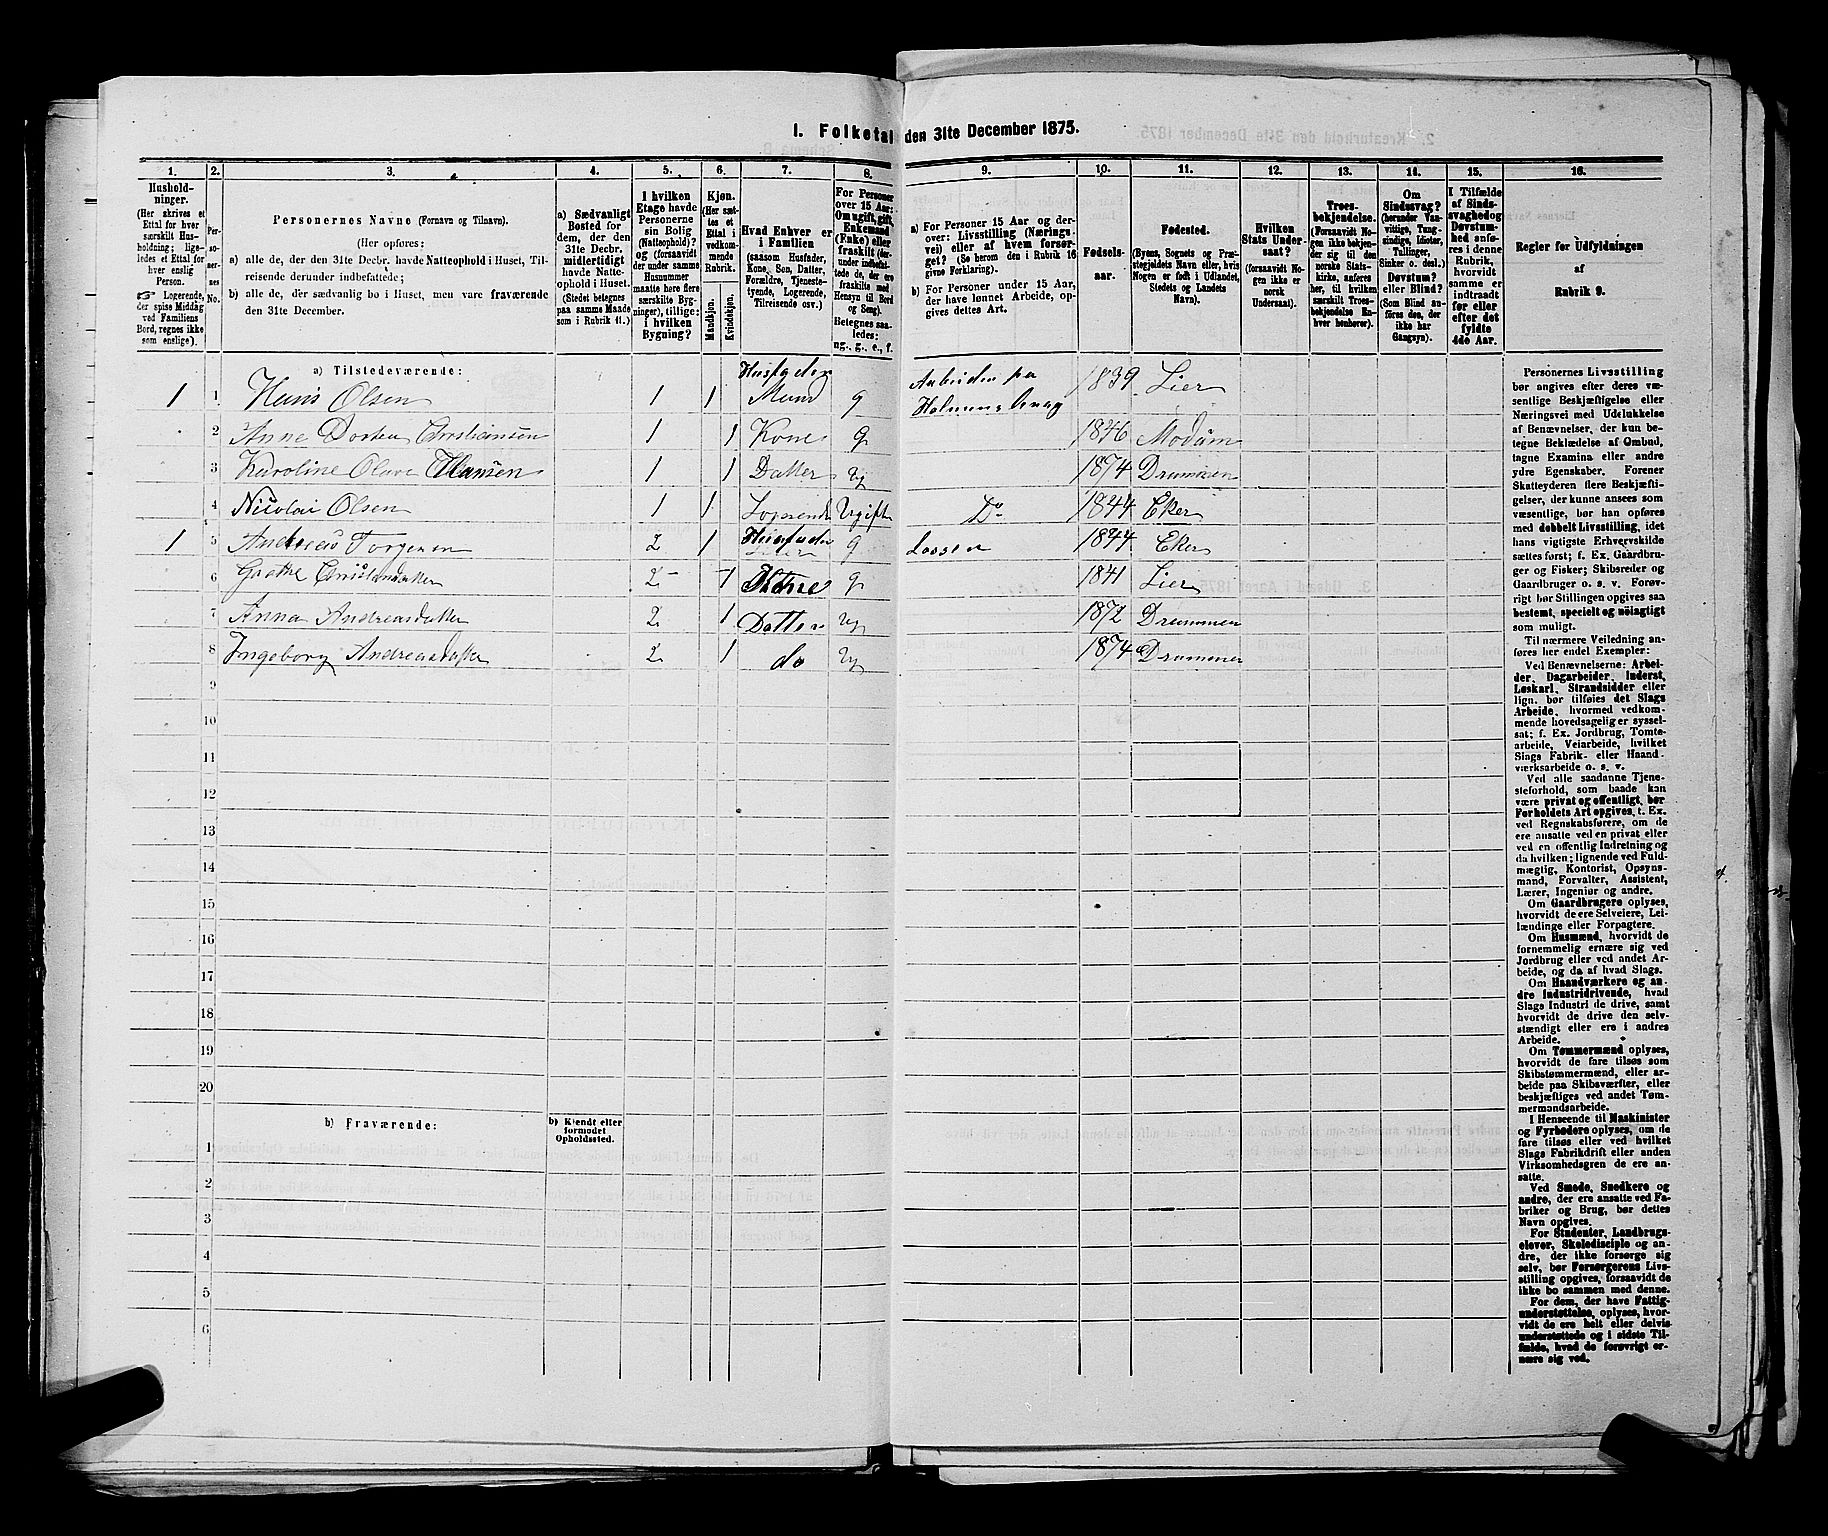 I. Folketal den 31te December 1875.
1. 2. 3. 4. 5. 6. 7. 8. 9. 10. 11. 12. 13. 14. 15. 16.
Husholdninger.
(Her skrives et Ettal for hver særskilt Husholdning; ligeledes et Ettal for hver enslig Person.
☞ Logerende, der spise Middag ved Familiens Bord, regnes ikke som enslige).
Personernes No.
Personernes Navne (Fornavn og Tilnavn).
(Her opføres:
a) alle de, der den 31te Decbr. havde Natteophold i Huset, Tilreisende derunder indbefattede;
b) alle de, der sædvanlig bo i Huset, men vare fraværende den 31te December.
a) Sædvanligt Bosted for dem, der den 31te Decbr. midlertidigt havde Natteophold i Huset.
(Stedet betegnes paa samme Maade som i Rubrik 11.)
I hvilken Etage havde Personerne sin Bolig (Natteophold)? og (forsaavidt der under samme Husnummer maatte høre flere særskilte Bygninger), tillige: i hvilken Bygning?
Kjøn.
(Her sættes et Ettal i vedkommende Rubrik.
Mandkjøn. Kvindekjøn.
Hvad Enhver er i Familien
(saasom Husfader, Kone, Søn, Datter, Forældre, Tjenestetyende, Logerende, Tilreisende osv.)
For Personer over 15 Aar: Om ugift, gift, Enkemand (Enke) eller fraskilt (derunder indbefattede de, der ere fraskilte med Hensyn til Bord og Seng).
Betegnes saaledes: ug., g., e., f.
a) For Personer 15 Aar og derover: Livsstilling (Næringsvei) eller af hvem forsørget? (Se herom den i Rubrik 16 givne Forklaring).
b) For Personer under 15 Aar, der have lønnet Arbeide, opgives dettes Art.
Fødselsaar.
Fødested.
(Byens, Sognets og Præstegjeldets Navn eller, hvis Nogen er født i Udlandet, Stedets og Landets Navn).
Hvilken Stats Undersaat?
(forsaavidt Nogen ikke er norsk Undersaat).
Troesbekjendelse.
(Forsaavidt Nogen ikke bekjender sig til den norske Statskirke, anføres her, til hvilken særskilt Troesbekjendelse Enhver henhører).
Om Sindssvag? (herunder Vanvittige, Tungsindige, Idioter, Tullinger, Sinker o. desl.)
Døvstum? eller Blind?
(Som Blind anføres den, der ikke har Gangsyn).
I Tilfælde af Sindssvaghed og Døvstumhed anføres i denne Rubrik, hvorvidt samme er indtraadt før eller efter det fyldte 4de Aar.
Regler for Udfyldningen af Rubrik 9.
a) Tilstedeværende:
1 1 Hans Olsen 1 1 Husfader Mand g Arbeider pa 1839 Lier
2 Anne Dortea Christiansen 1 1 Kone g 1846 Modum
3 Karoline Olava Hansen 1 1 Datter ug 1874 Drammen
4 Nicolai Olsen 1 1 Logerende Ugift Do 1844 Eker
1 5 Andreas Torgersen 2 1 Husfader g 1844 Eker
6 Grethe Christiansdatter 2 1 Kone g 1841 Lier
7 Anna Andreasdatter 2 1 Datter ug 1872 Drammen
8 Ingeborg Andreasdatter 2 1 do ug 1874 Drammen
9
10
11
12
13
14
15
16
17
18
19
20
b) Fraværende:
b) Kjendt eller formodet Opholdssted.
1
2
3
4
5
6
Personernes Livsstilling bør angives efter deres væsentlige Beskjæftigelse eller Næringsvei med Udelukkelse af Benævnelser, der kun betegne Beklædelse af Ombud, tagne Examina eller andre ydre Egenskaber. Forener Skatteyderen flere Beskjæftigelser, der kunne ansees som væsentlige, bør han opføres med dobbelt Livsstilling, idet hans vigtigste Erhvervskilde sættes først; f. Ex. Gaardbruger og Fisker; Skibsreder og Gaardbruger o. s. v. Forøvrigt bør Stillingen opgives saa bestemt, specielt og nøiagtigt som muligt.
Til nærmere Veiledning anføres her endel Exempler:
Ved Benævnelserne: Arbeider, Dagarbeider, Inderst, Løskarl, Strandsidder eller lign. bør tilføies det Slags Arbeide, hvormed vedkommende hovedsagelig er sysselsat; f. Ex. Jordbrug, Tomtearbeide, Veiarbeide, hvilket Slags Fabrik- eller Haandværksarbeide o. s. v.
Ved alle saadanne Tjenesteforhold, som baade kan være privat og offentligt, bør Forholdets Art opgives, t. Ex. ved Regnskabsførere, om de ere ansatte ved en privat eller ved en offentlig Indretning og da hvilken; lignende ved Fuldmægtig, Kontorist, Opsynsmand, Forvalter, Assistent, Lærer, Ingeniør og andre.
Om Gaardbrugere oplyses, hvorvidt de ere Selveiere, Leilændinge eller Forpagtere.
Om Husmænd, hvorvidt de fornemmelig ernære sig ved Jordbrug eller ved andet Arbeide, og da af hvad Slags.
Om Haandværkere og andre Industridrivende, hvad Slags Industri de drive, samt hvorvidt de drive den selvstændigt eller ere i andres Arbeide.
Om Tømmermænd oplyses, hvorvidt de fare tilsøs som Skibstømmermænd, eller arbeide paa Skibsværfter, eller beskjæftiges ved andet Tømmermandsarbeide.
I Henseende til Maskinister og Fyrbødere oplyses, om de fare tilsøs eller ved hvilket Slags Fabrikdrift eller anden Virksomhedsgren de ere ansatte.
Ved Smede, Snedkere og andre, der ere ansatte ved Fabriker og Brug, bør dettes Navn opgives.
For Studenter, Landbrugselever, Skoledisciple og andre, der ikke forsørge sig selv, bør Forsørgerens Livsstilling opgives, forsaavidt de ikke bo sammen med denne.
For dem, der have Fattigunderstøttelse, oplyses, hvorvidt de ere helt eller delvis understøttede og i sidste Tilfælde, hvad de forøvrigt ernære sig ved.